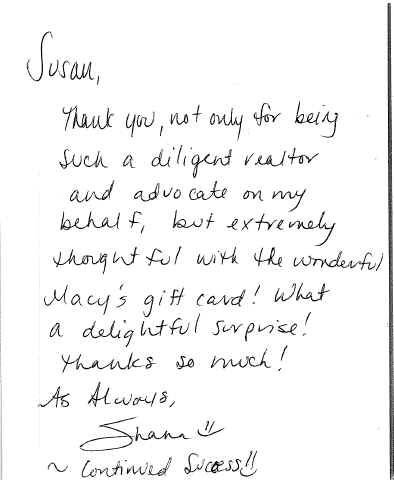 Susan,
Thank you, not only for being
such a diligent realtor
and advocate on my
behalf, but extremely
thoughtful with the wonderful
Macy's gift card! What
a delightful surprise!
Thanks so much!
As Always,
Shana
~ Continued Success!!